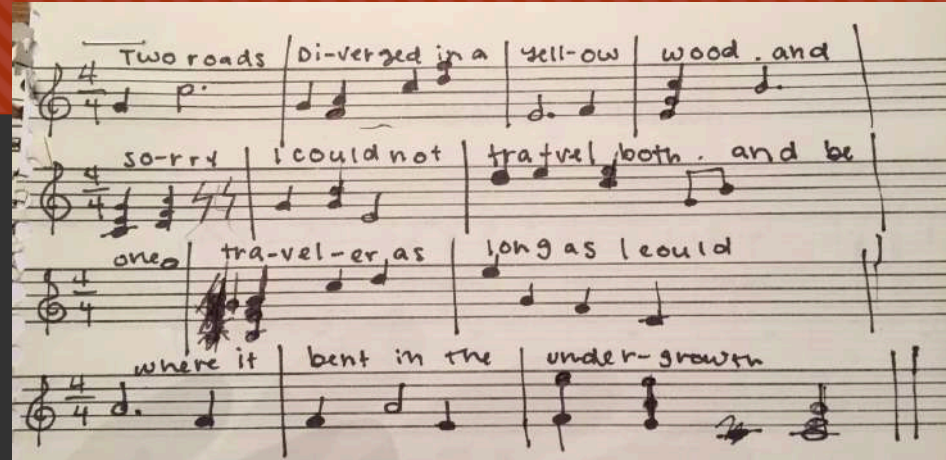 Two roads Di-verged in a yell-ow wood . and
4 4
so-rry I could not tra-vel both . and be
4 4
one tra-vel-er, as long as I could
4 4
where it bent in the under-growth
4 4